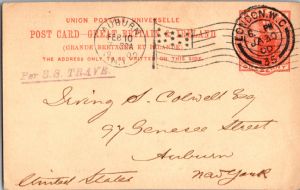 UNION POSTALE UNIVERSELLE
POST CARD - GREAT BRITAIN & IRELAND
(GRANDE BRETAGNE ET IRLANDE)
THE ADDRESS ONLY TO BE WRITTEN ON THIS SIDE.
AUBURN
FEB 10
LONDON. W.C
35
Per S.S. TRAVE.
Irving S. Colwell Esq
97 Genesee Street
Auburn
New York
United States